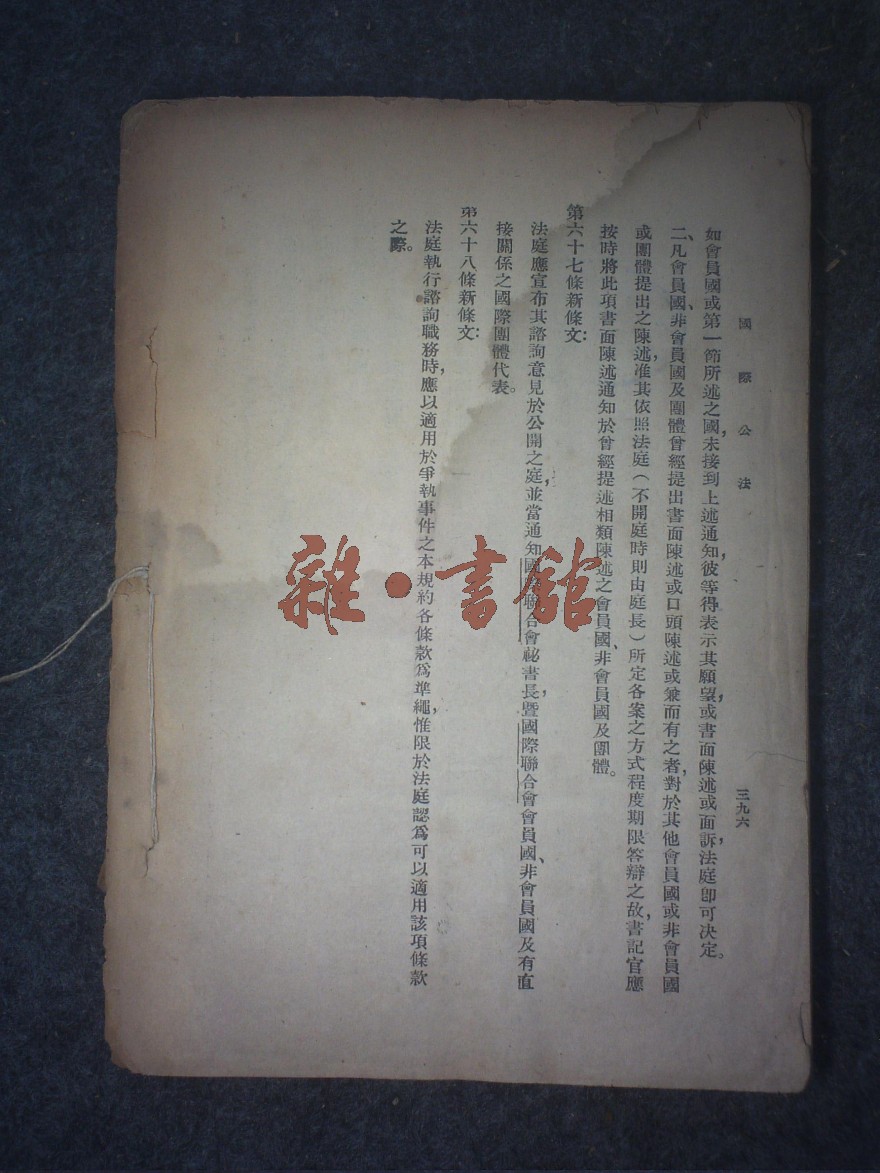 國際公法 三九六
如會員國或第一節所述之國，未接到上述通知，彼等得表示其願望，或書面陳述或面訴，法庭卽可決定。
二、凡會員國、非會員國及團體曾經提出書面陳述或口頭陳述或兼而有之者，對於其他會員國或非會員國
或團體提出之陳述，准其依照法庭（不開庭時則由庭長）所定各案之方式程度期限答辯之，故書記官應
按時將此項書面陳述通知於曾經提述相類陳述之會員國、非會員國及團體。
第六十七條新條文：
法庭應宣布其諮詢意見於公開之庭，並當通知國際聯合會祕書長，暨國際聯合會會員國、非會員國及有直
接關係之國際團體代表。
第六十八條新條文：
法庭執行諮詢職務時，應以適用於爭執事件之本規約各條款爲準繩，惟限於法庭認爲可以適用該項條款
之際。
雜·書館